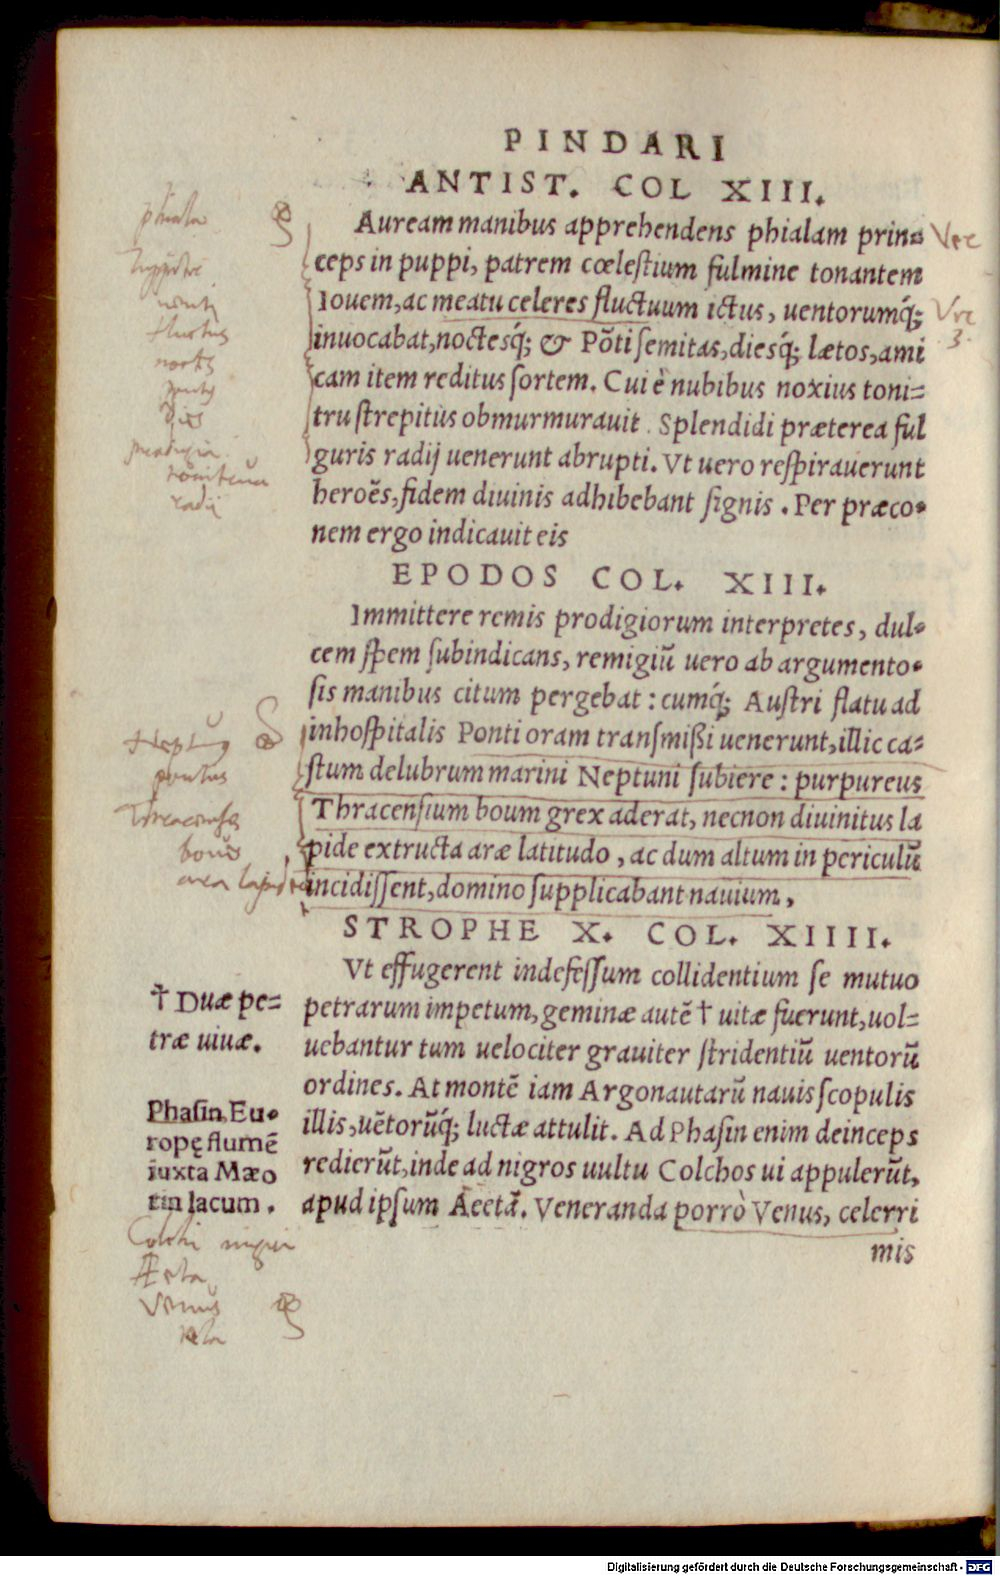 PINDARI
ANTIST. COL XIII.
Auream manibus apprehendens phialam prin=
ceps in puppi, patrem cœlestium fulmine tonantem
Iouem, ac meatu celeres fluctuum ictus, uentorumq́;
inuocabat, noctesq́; & Põti semitas, diesq́; lætos, ami
cam item reditus sortem. Cui è nubibus noxius toni=
tru strepitus obmurmurauit. Splendidi præterea ful
guris radij uenerunt abrupti. Vt uero respirauerunt
heroẽs, fidem diuinis adhibebant signis. Per præco=
nem ergo indicauit eis
EPODOS COL. XIII.
Immittere remis prodigiorum interpretes, dul=
cem spem subindicans, remigiũ uero ab argumento=
sis manibus citum pergebat: cumq́; Austri flatu ad
inhospitalis Ponti oram transmißi uenerunt, illic ca=
stum delubrum marini Neptuni subiere: purpureus
Thracensium boum grex aderat, necnon diuinitus la
pide extructa aræ latitudo, ac dum altum in periculũ
incidissent, domino supplicabant nauium.
STROPHE X. COL. XIIII.
Vt effugerent indefessum collidentium se mutuo
petrarum impetum, geminæ autẽ † uitæ fuerunt, uol=
uebantur tum uelociter grauiter stridentiũ uentorũ
ordines. At montẽ iam Argonautarũ nauis scopulis
illis, uẽtorũq́; luctæ attulit. Ad Phasin enim deinceps
redierũt, inde ad nigros uultu Colchos ui appulerũt,
apud ipsum Aeetã. Veneranda porrò Venus, celerri
mis
† Duæ pe=
træ uiuæ.
Phasin, Eu=
ropę flumẽ
iuxta Mæo
tin lacum.
phiala
fluctus
noctes
dies
radij
pontus
boues
Colchi nigri
Æeta
Venus
Digitalisierung gefördert durch die Deutsche Forschungsgemeinschaft - DFG